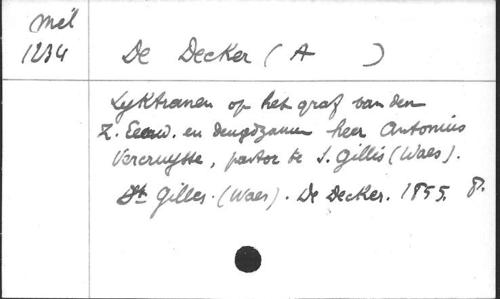 Mél
1234
De Decker (A )
Lyktranen op het graf van den
Z. Eerw. en deugdzamen heer Antonius
Vercruysse, pastor te S. Gillis (Waes).
St Gilles. (Waes). De Decker. 1855. 8.